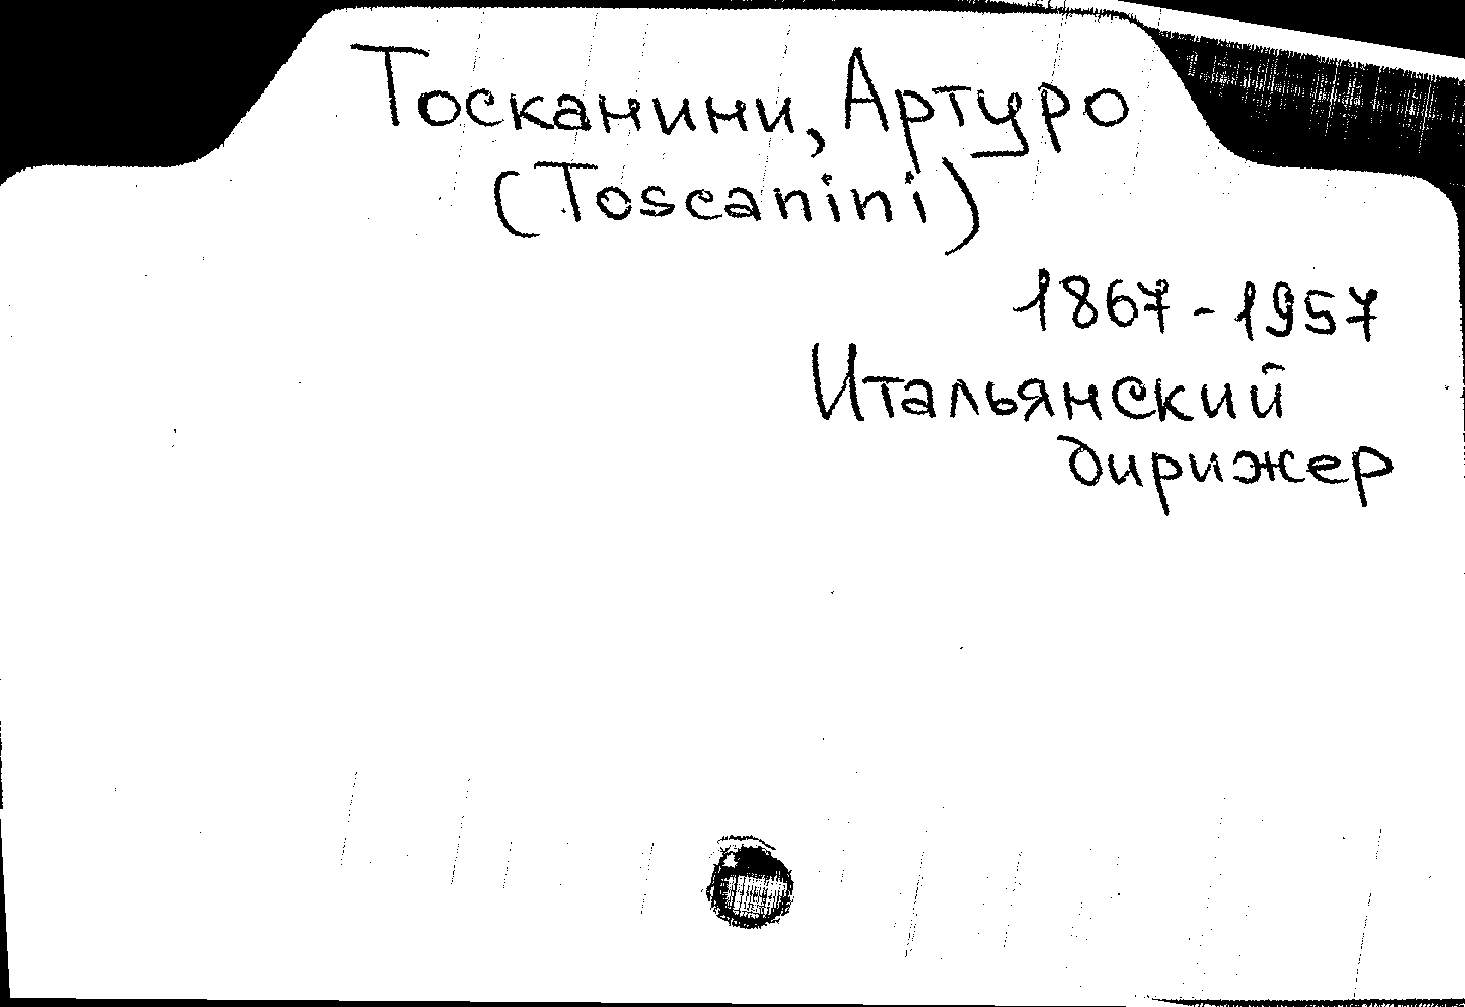 Тосканини, Артуро
(Toscanini)
1867-1957
Итальянский
дирижер